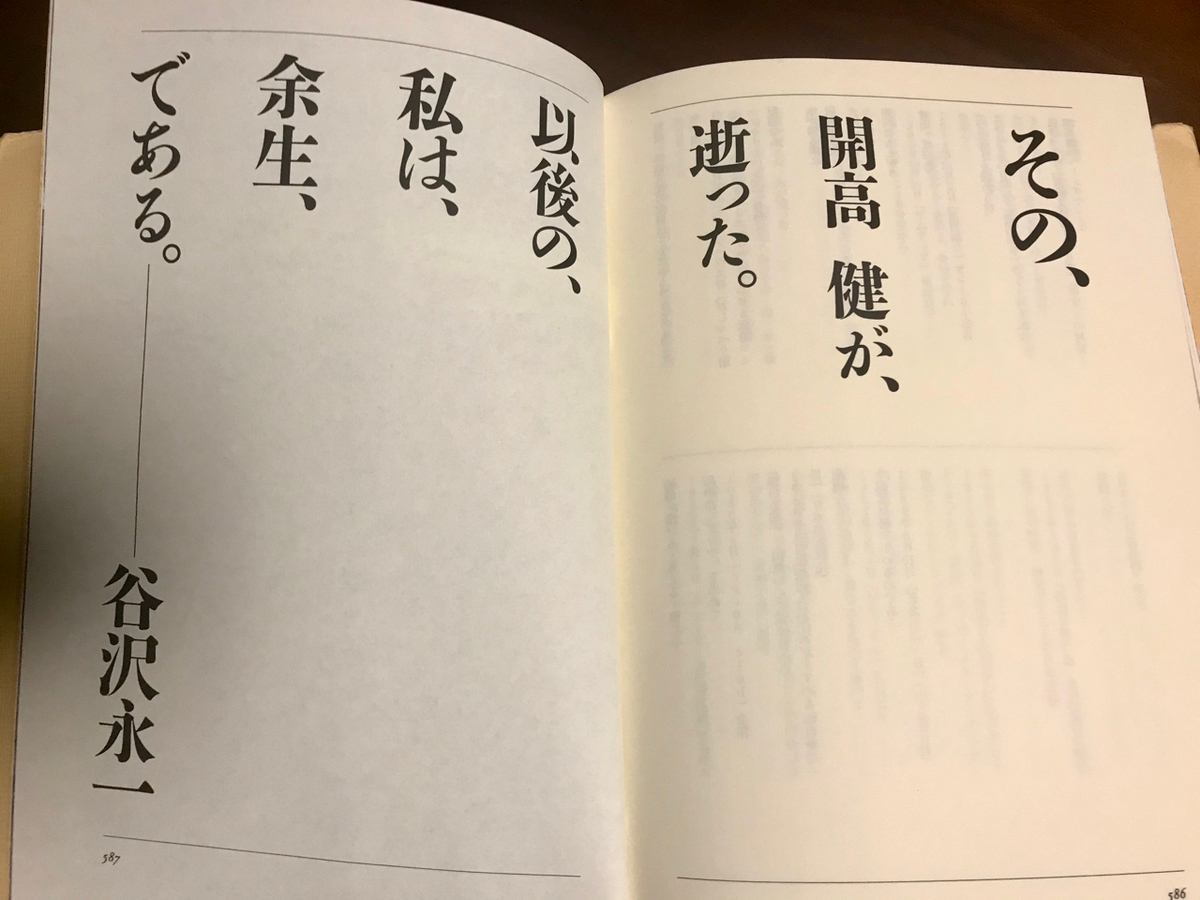 その、
開高 健が、
逝った。
586
以後の、
私は、
余生、
である。――谷沢永一
587